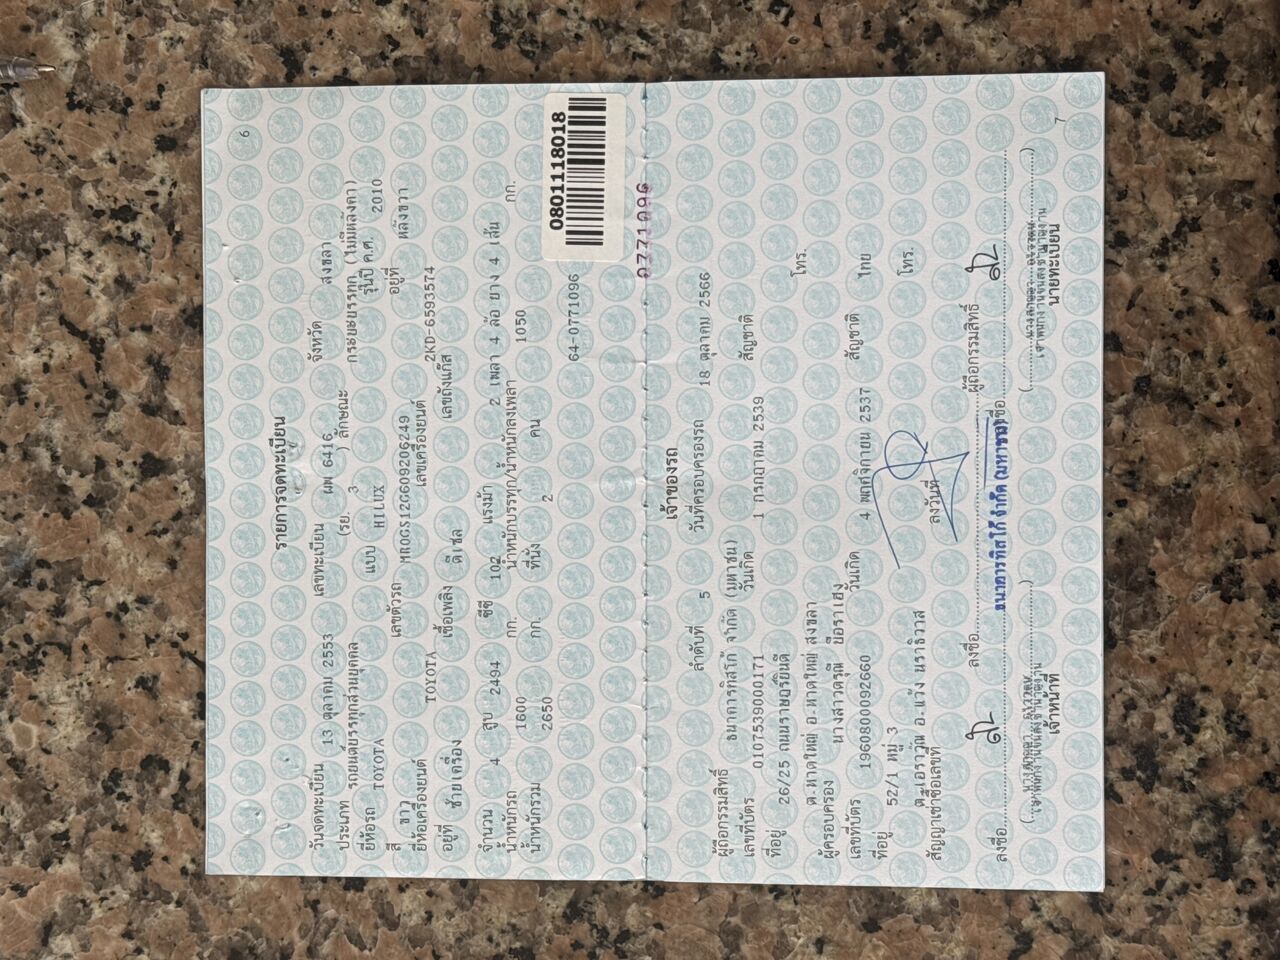 6
รายการจดทะเบียน
วันจดทะเบียน 13 ตุลาคม 2553 เลขทะเบียน ผผ 6416 จังหวัด สงขลา
ประเภท รถยนต์บรรทุกส่วนบุคคล (รย. 3 ) ลักษณะ กระบะบรรทุก (ไม่มีหลังคา)
ยี่ห้อรถ TOYOTA แบบ HILUX รุ่นปี ค.ศ. 2010
สี ขาว เลขตัวรถ MR0GS12G609206249 อยู่ที่ หลังขวา
ยี่ห้อเครื่องยนต์ TOYOTA เลขเครื่องยนต์ 2KD-6593574
อยู่ที่ ซ้ายเครื่อง เชื้อเพลิง ดีเซล เลขถังแก๊ส
จำนวน 4 สูบ 2494 ซีซี 102 แรงม้า 2 เพลา 4 ล้อ ยาง 4 เส้น
น้ำหนักรถ 1600 กก. น้ำหนักบรรทุก/น้ำหนักลงเพลา 1050 กก.
น้ำหนักรวม 2650 กก. ที่นั่ง 2 คน
64-0771096
0801118018
0771096
เจ้าของรถ
ลำดับที่ 5 วันที่ครอบครองรถ 18 ตุลาคม 2566
ผู้ถือกรรมสิทธิ์ ธนาคารทิสโก้ จำกัด (มหาชน)
เลขที่บัตร 0107539000171 วันเกิด 1 กรกฎาคม 2539 สัญชาติ
ที่อยู่ 26/25 ถนนราษฎร์ยินดี
ต.หาดใหญ่ อ.หาดใหญ่ สงขลา โทร.
ผู้ครอบครอง นางสาวดรุณี ยือราเฮ็ง
เลขที่บัตร 1960800092660 วันเกิด 4 พฤศจิกายน 2537 สัญชาติ ไทย
ที่อยู่ 52/1 หมู่ 3
ต.เอราวัณ อ.แว้ง นราธิวาส โทร.
สัญญาเช่าซื้อเลขที่ ลงวันที่
ลงชื่อ ผู้ถือกรรมสิทธิ์
ธนาคารทิสโก้ จำกัด (มหาชน)
ลงชื่อ ลงชื่อ
เจ้าพนักงานขนส่งชำนาญงาน เจ้าพนักงานขนส่งชำนาญงาน
เจ้าหน้าที่ นายทะเบียน
7